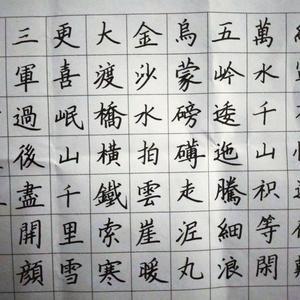 萬水千山祇等閑
五岭逶迤騰細浪
烏蒙磅礴走泥丸
金沙水拍雲崖暖
大渡橋橫鐵索寒
更喜岷山千里雪
三軍過後盡開顔